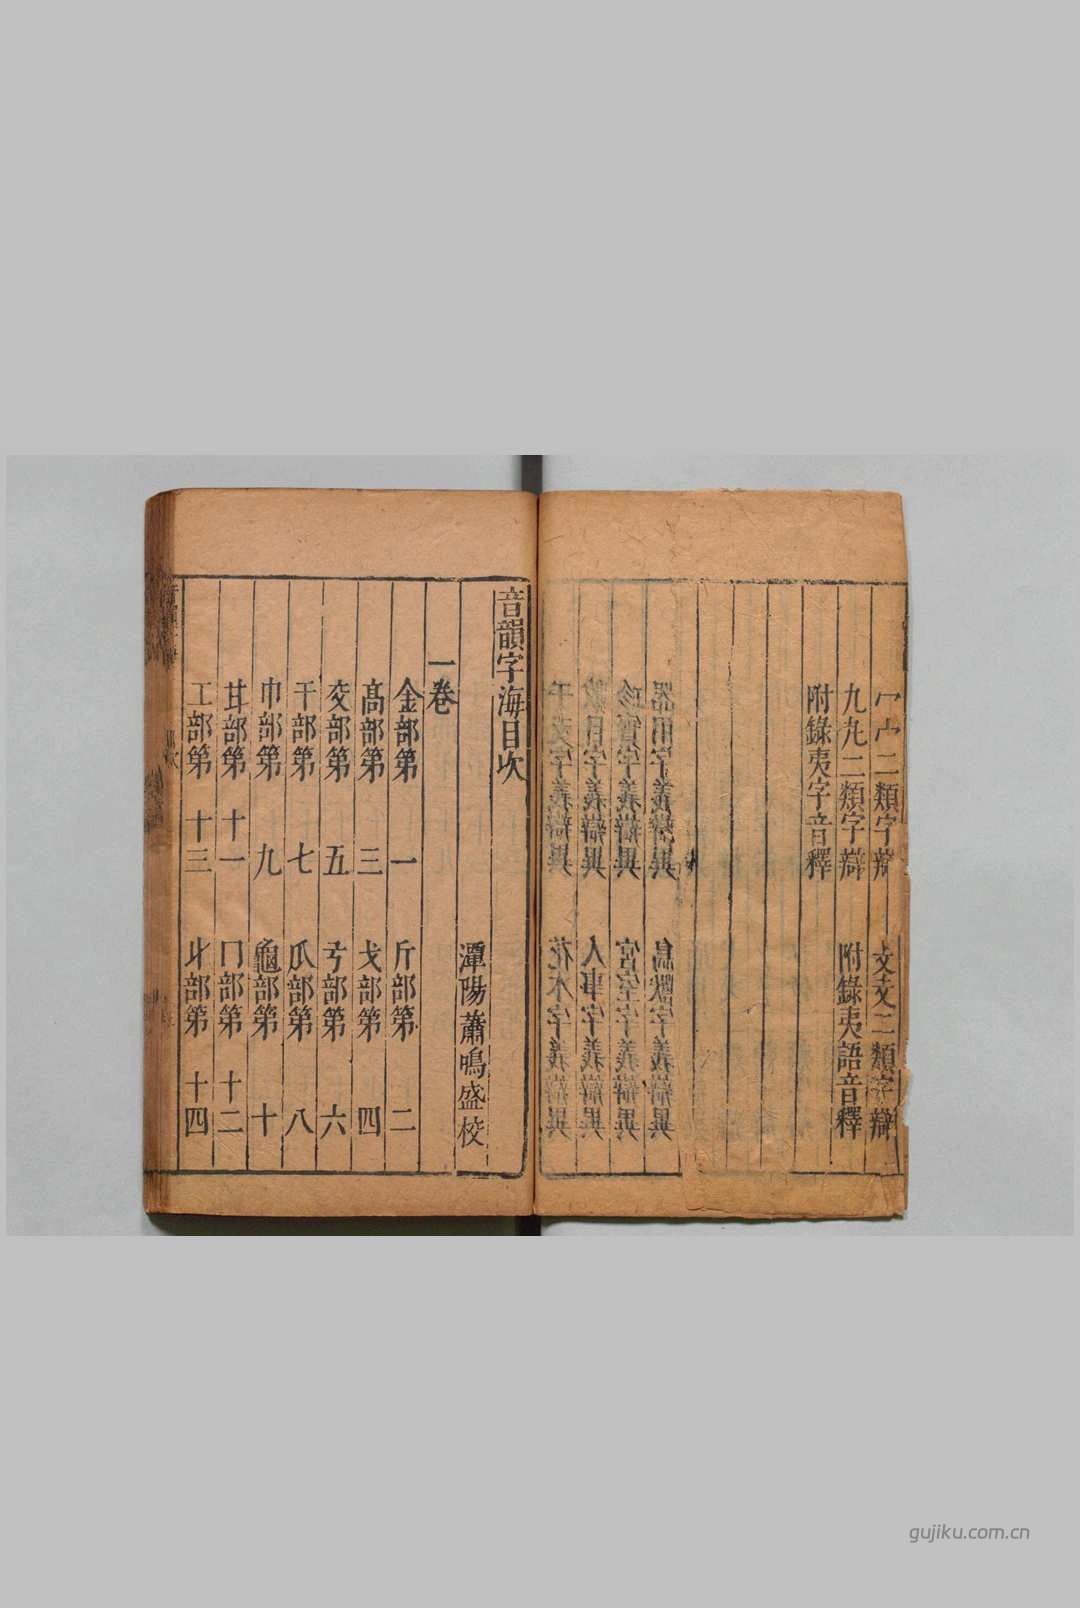 宀二類字辯 文攴二類字辯
九尢二類字辯 附錄夷語音釋
附錄夷字音釋
器用字義辯異 鳥獸字義辯異
珍寶字義辯異 宮室字義辯異
數目字義辯異 人事字義辯異
干支字義辯異 花木字義辯異
音韻字海目次
潭陽蕭鳴盛校
一卷
金部第一 斤部第二
髙部第三 戈部第四
交部第五 亏部第六
干部第七 瓜部第八
巾部第九 龜部第十
甘部第十一 冂部第十二
工部第十三 丩部第十四
目次
gujiku.com.cn